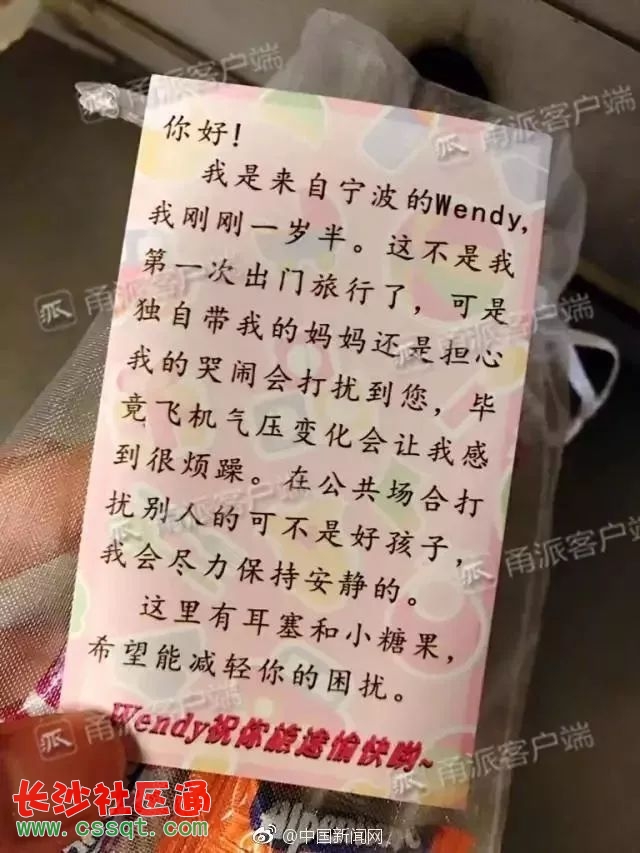 你好！
我是来自宁波的Wendy,
我刚刚一岁半。这不是我
第一次出门旅行了，可是
独自带我的妈妈还是担心
我的哭闹会打扰到您，毕
竟飞机气压变化会让我感
到很烦躁。在公共场合打
扰别人的可不是好孩子，
我会尽力保持安静的。
这里有耳塞和小糖果，
希望能减轻你的困扰。
Wendy祝你旅途愉快哟~
甬派客户端
甬派客户端
甬派客户端
甬派客户端
甬派客户端
甬派客户端
甬派客户端
长沙社区通
www.cssqt.com
@中国新闻网